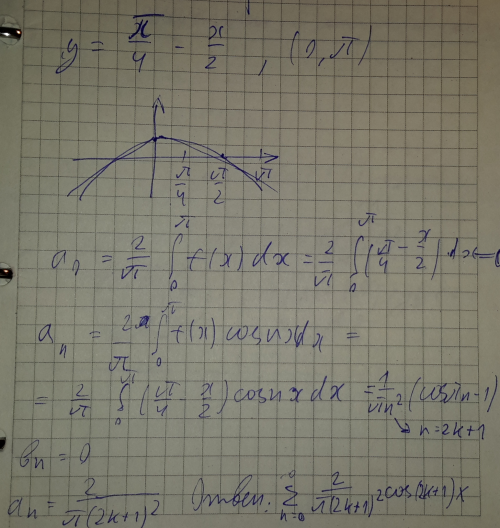 y = π/4 - x/2 , (0, π)
π/4 π/2 π
a₀ = 2/π ∫₀^π f(x) dx = 2/π ∫₀^π (π/4 - x/2) dx = 0
aₙ = 2/π ∫₀^π f(x) cos nx dx =
= 2/π ∫₀^π (π/4 - x/2) cos nx dx = 1/πn² (cos πn - 1)
→ n = 2k+1
bₙ = 0
aₙ = 2/π(2k+1)² Ответ: ∑ 2/π(2k+1)² cos(2k+1)x
n=0